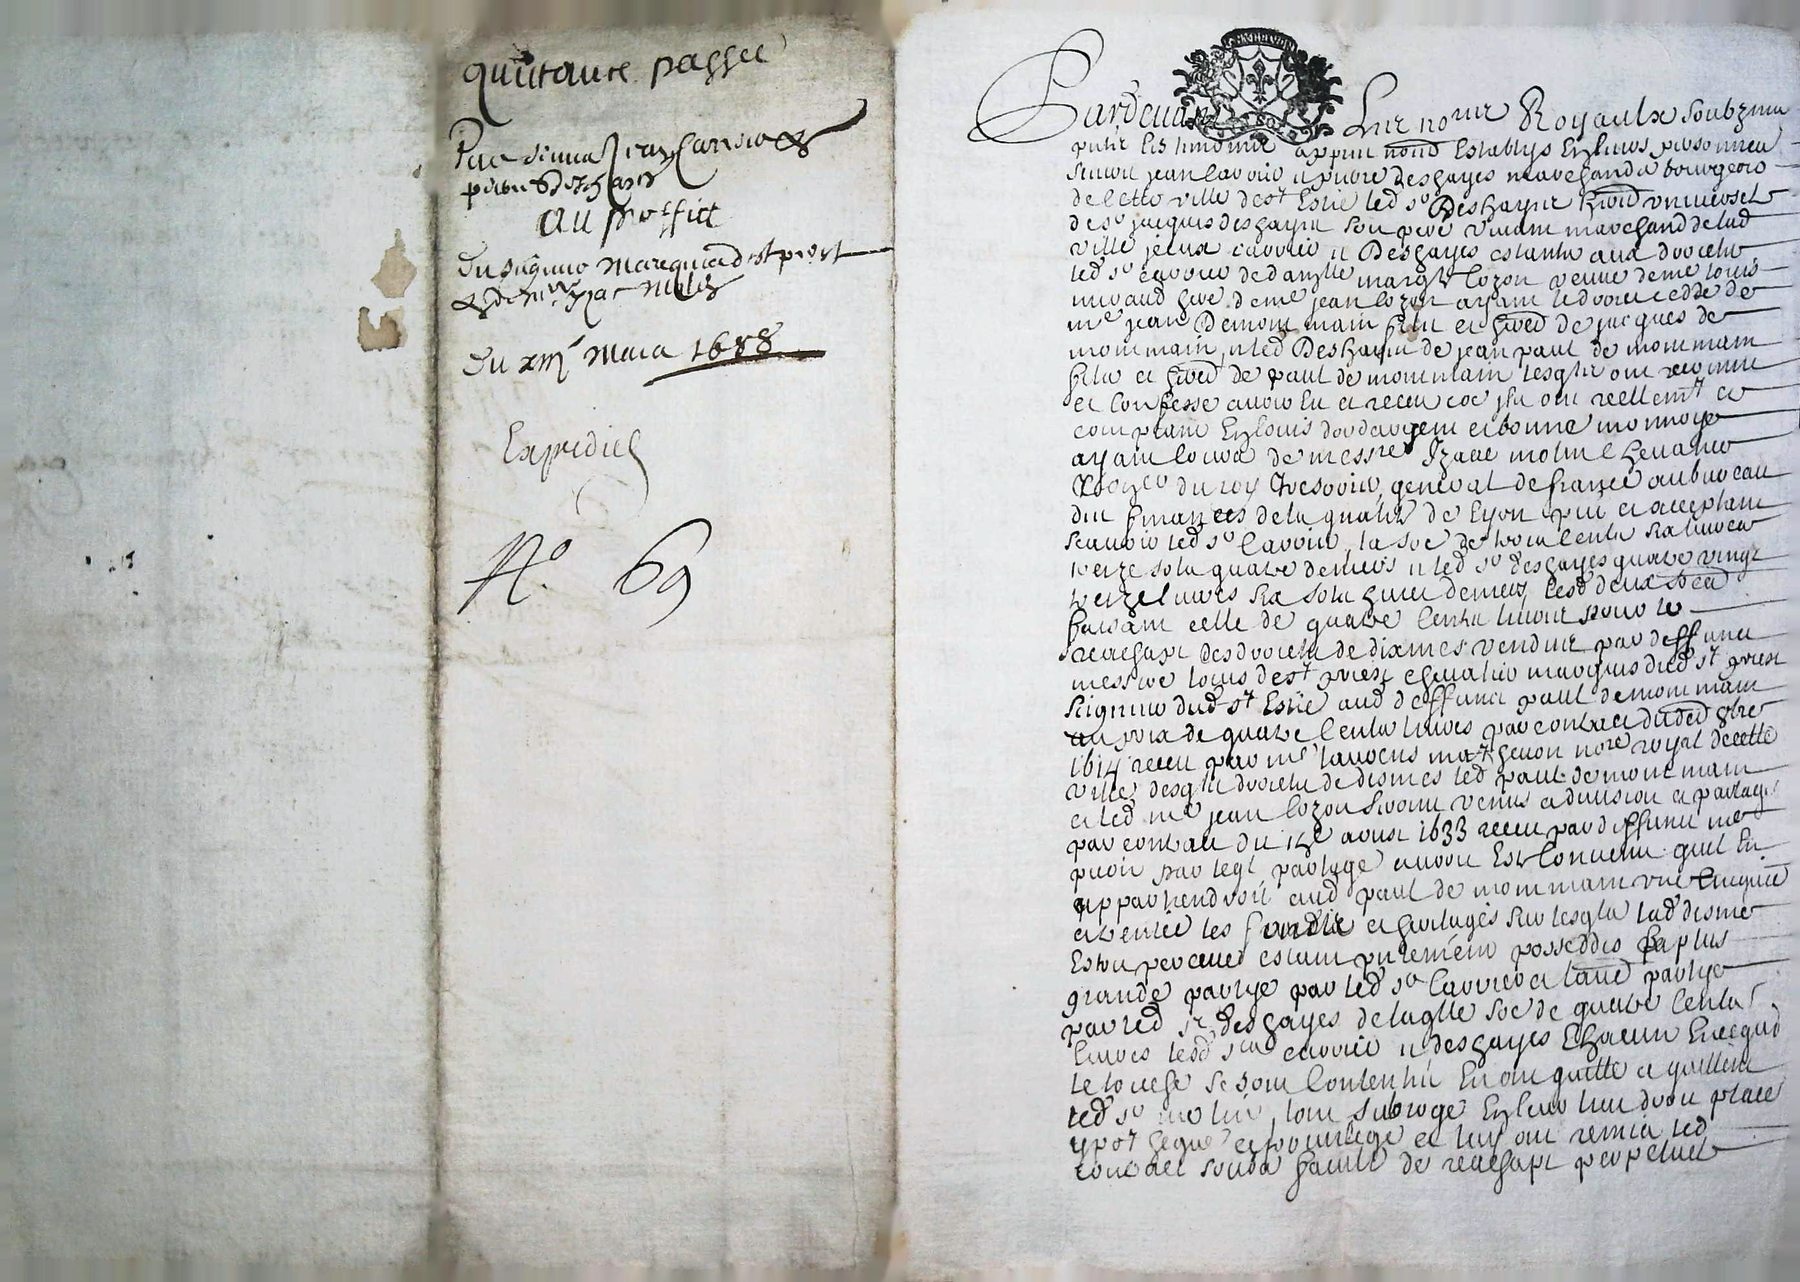 quittance passée
Par sieurs Jean Carrier &
pierre Deshayes
au proffict
Du seigneur Marequis de st priest
& de Mre Izac Molin
Du xiij Mars 1688
Expediée
No. 69
Pardevant Les noers Royaulx soubzma
appnt nond establys En leurs personnes
scavoir jean Carrier et pierre Deshayes marchandz bourgeois
de cette ville de st Estie led sr Deshayes hered universel
de sr jacques deshayes son pere vivant marchand de lad
ville jceux Carrier et Deshayes estantz aux droictz
led sr Carrier de damlle margte Cozon veuve de me louis
here de me jean Cozon ayant le droict cedde de
me jean Demommain filz et hered de jacques de
mommain, et led Deshayes de jean paul de mommain
filz et hered de paul de mommain lesqlz ont reconnu
et Confessé avoir eu et receu coe jlz ont reellemt et
comptant En louis d'or d'argent et bonne monnoye
ayant cours de messre Izaac molin Chevalier
Coner du roy Thresorier general de france au bureau
des finances de la gnalite de Lyon pnt et acceptant
scavoir led sr Carrier la soe de trois Centz six livres
treize solz quatre deniers et led sr deshayes quatre vingt
treize livres six solz huict deniers lesd deux soes
faisant celle de quatre Centz livres pour le
reachapt des droictz de dixmes vendus par deffunct
messire louis de st priest chevalier marquis dud st priest
seigneur dud st Estie aud deffunct paul de mommain
au prix de quatre Centz livres par contract du
1614 receu par me laurens mathevon nore royal de cette
ville desqlz droictz de dismes led paul de mommain
et led me jean Cozon seroint venus a division et partage
par contract du 15e aoust 1633 receu par deffunct me
par leql partage auroit Esté Convenu quil En
appartiendroit aud paul de mommain une Cinquie
les fondz et heritages sur lesqlz lad disme
Estoit perceue estant presentemt possedés sa plus
grande partye par led sr Carrier et l'autre partye
par led sr deshayes de laqlle soe de quatre Centz
livres lesd srs Carrier et deshayes Chacun En ce quil
le touche se sont Contentés En ont quitté et quittent
led sr molin, l'ont subrogé En leur lieu droict place
ypotheque et privilege et luy ont remis led
contract soubz faculté de reachapt perpetuel